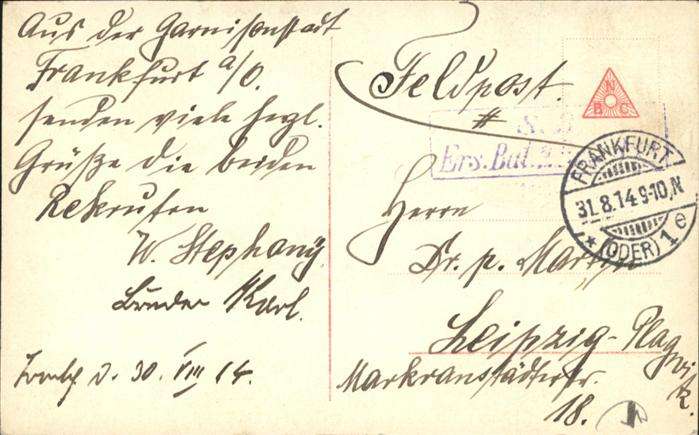 Aus der Garnisonstadt
Frankfurt a/O.
senden viele herzl.
Grüße die beiden
Rekruten
W. Stephany
Bruder Karl.
d. 30. VIII 14.
Feldpost.
N
B C
S. B.
Ers. Bat.
FRANKFURT
31.8.14.9-10.N
* (ODER) 1 e
Herrn
Dr. p.
Leipzig-Plagwitz
Markranstädterstr.
18.